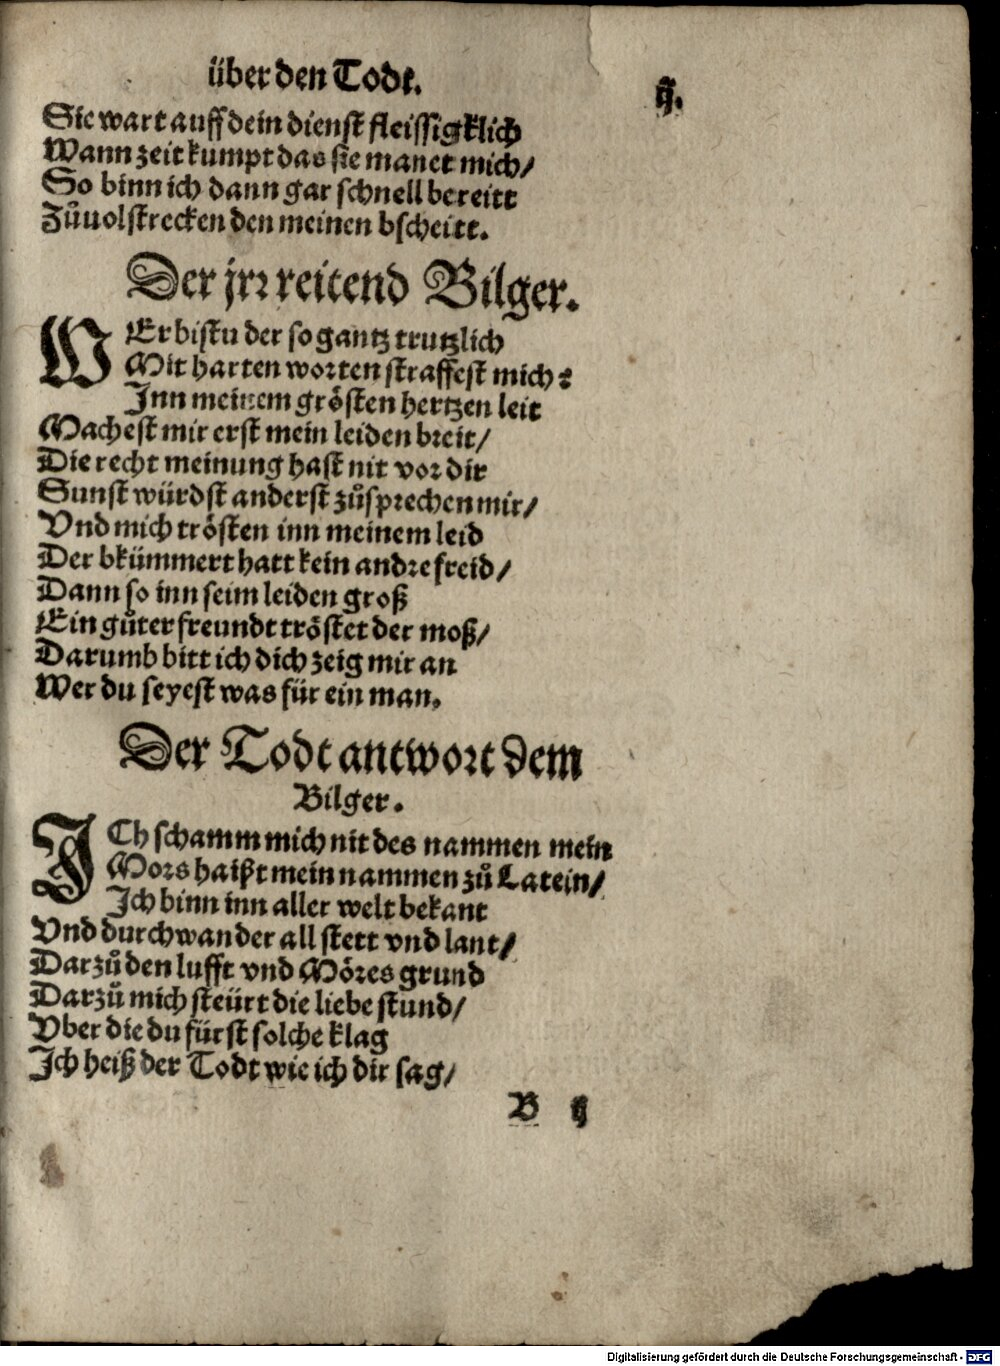 über den Todt.
ij.
Sie wart auff dein dienst fleissigklich
Wann zeit kumpt das sie manet mich/
So binn ich dann gar schnell bereitt
Zůuolstrecken den meinen bscheitt.
Der jrr reitend Bilger.
WEr bistu der so gantz trutzlich
Mit harten worten straffest mich?
Inn meinem grösten hertzen leit
Machest mir erst mein leiden breit/
Die recht meinung hast nit vor dir
Sunst würdst anderst zůsprechen mir/
Vnd mich trösten inn meinem leid
Der bkümmert hatt kein andre freid/
Dann so inn seim leiden groß
Ein gůter freundt tröstet der moß/
Darumb bitt ich dich zeig mir an
Wer du seyest was für ein man.
Der Todt antwort dem
Bilger.
ICh schamm mich nit des nammen mein
Mors haißt mein nammen zů Latein/
Ich binn inn aller welt bekant
Vnd durchwander all stett vnd lant/
Darzů den lufft vnd Möres grund
Darzů mich steürt die liebe stund/
Vber die du fürst solche klag
Ich heiß der Todt wie ich dir sag/
B ij
Digitalisierung gefördert durch die Deutsche Forschungsgemeinschaft - DFG